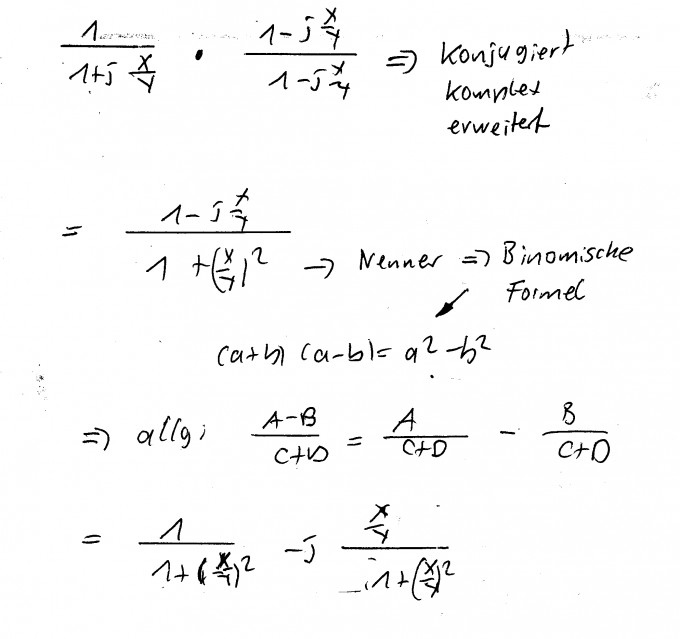 1/(1+j x/y) · (1-j x/y)/(1-j x/y) => Konjugiert
komplex
erweitert
= (1-j x/y)/(1+(x/y)²) -> Nenner => Binomische
Formel
(a+b) (a-b)= a²-b²
=> allg: (A-B)/(C+D) = A/(C+D) - B/(C+D)
= 1/(1+(x/y)²) -j (x/y)/(1+(x/y)²)